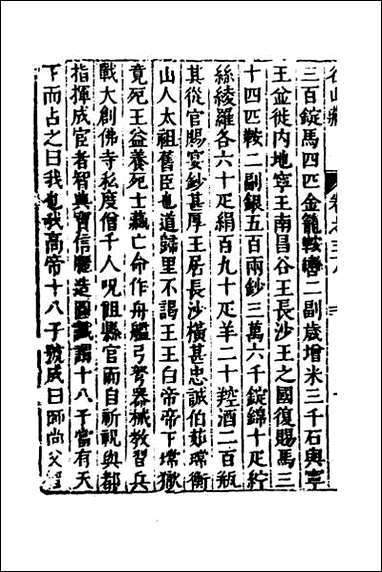 三百錠馬四匹金籠鞍轡二副歲增米三千石與寧
王並徙内地寧王南昌谷王長沙王之國復賜馬三
十四匹鞍二副銀五百兩鈔三萬六千錠錦十疋紵
絲綾羅各六十疋絹百九十疋羊二十羫酒二百瓶
其從官賜宴鈔甚厚王居長沙橫甚忠誠伯茹瑺衡
山人太祖舊臣也道歸里不謁王王白帝帝下瑺獄
竟死王益養死士藏亡命作舟艦弓弩器械教習兵
戰大創佛寺私度僧千人呪詛縣官而自祈祝與都
指揮成官者智典寶信造圖讖謂十八子當有天
下而占之曰我也我高帝十八子號成曰師尚父智